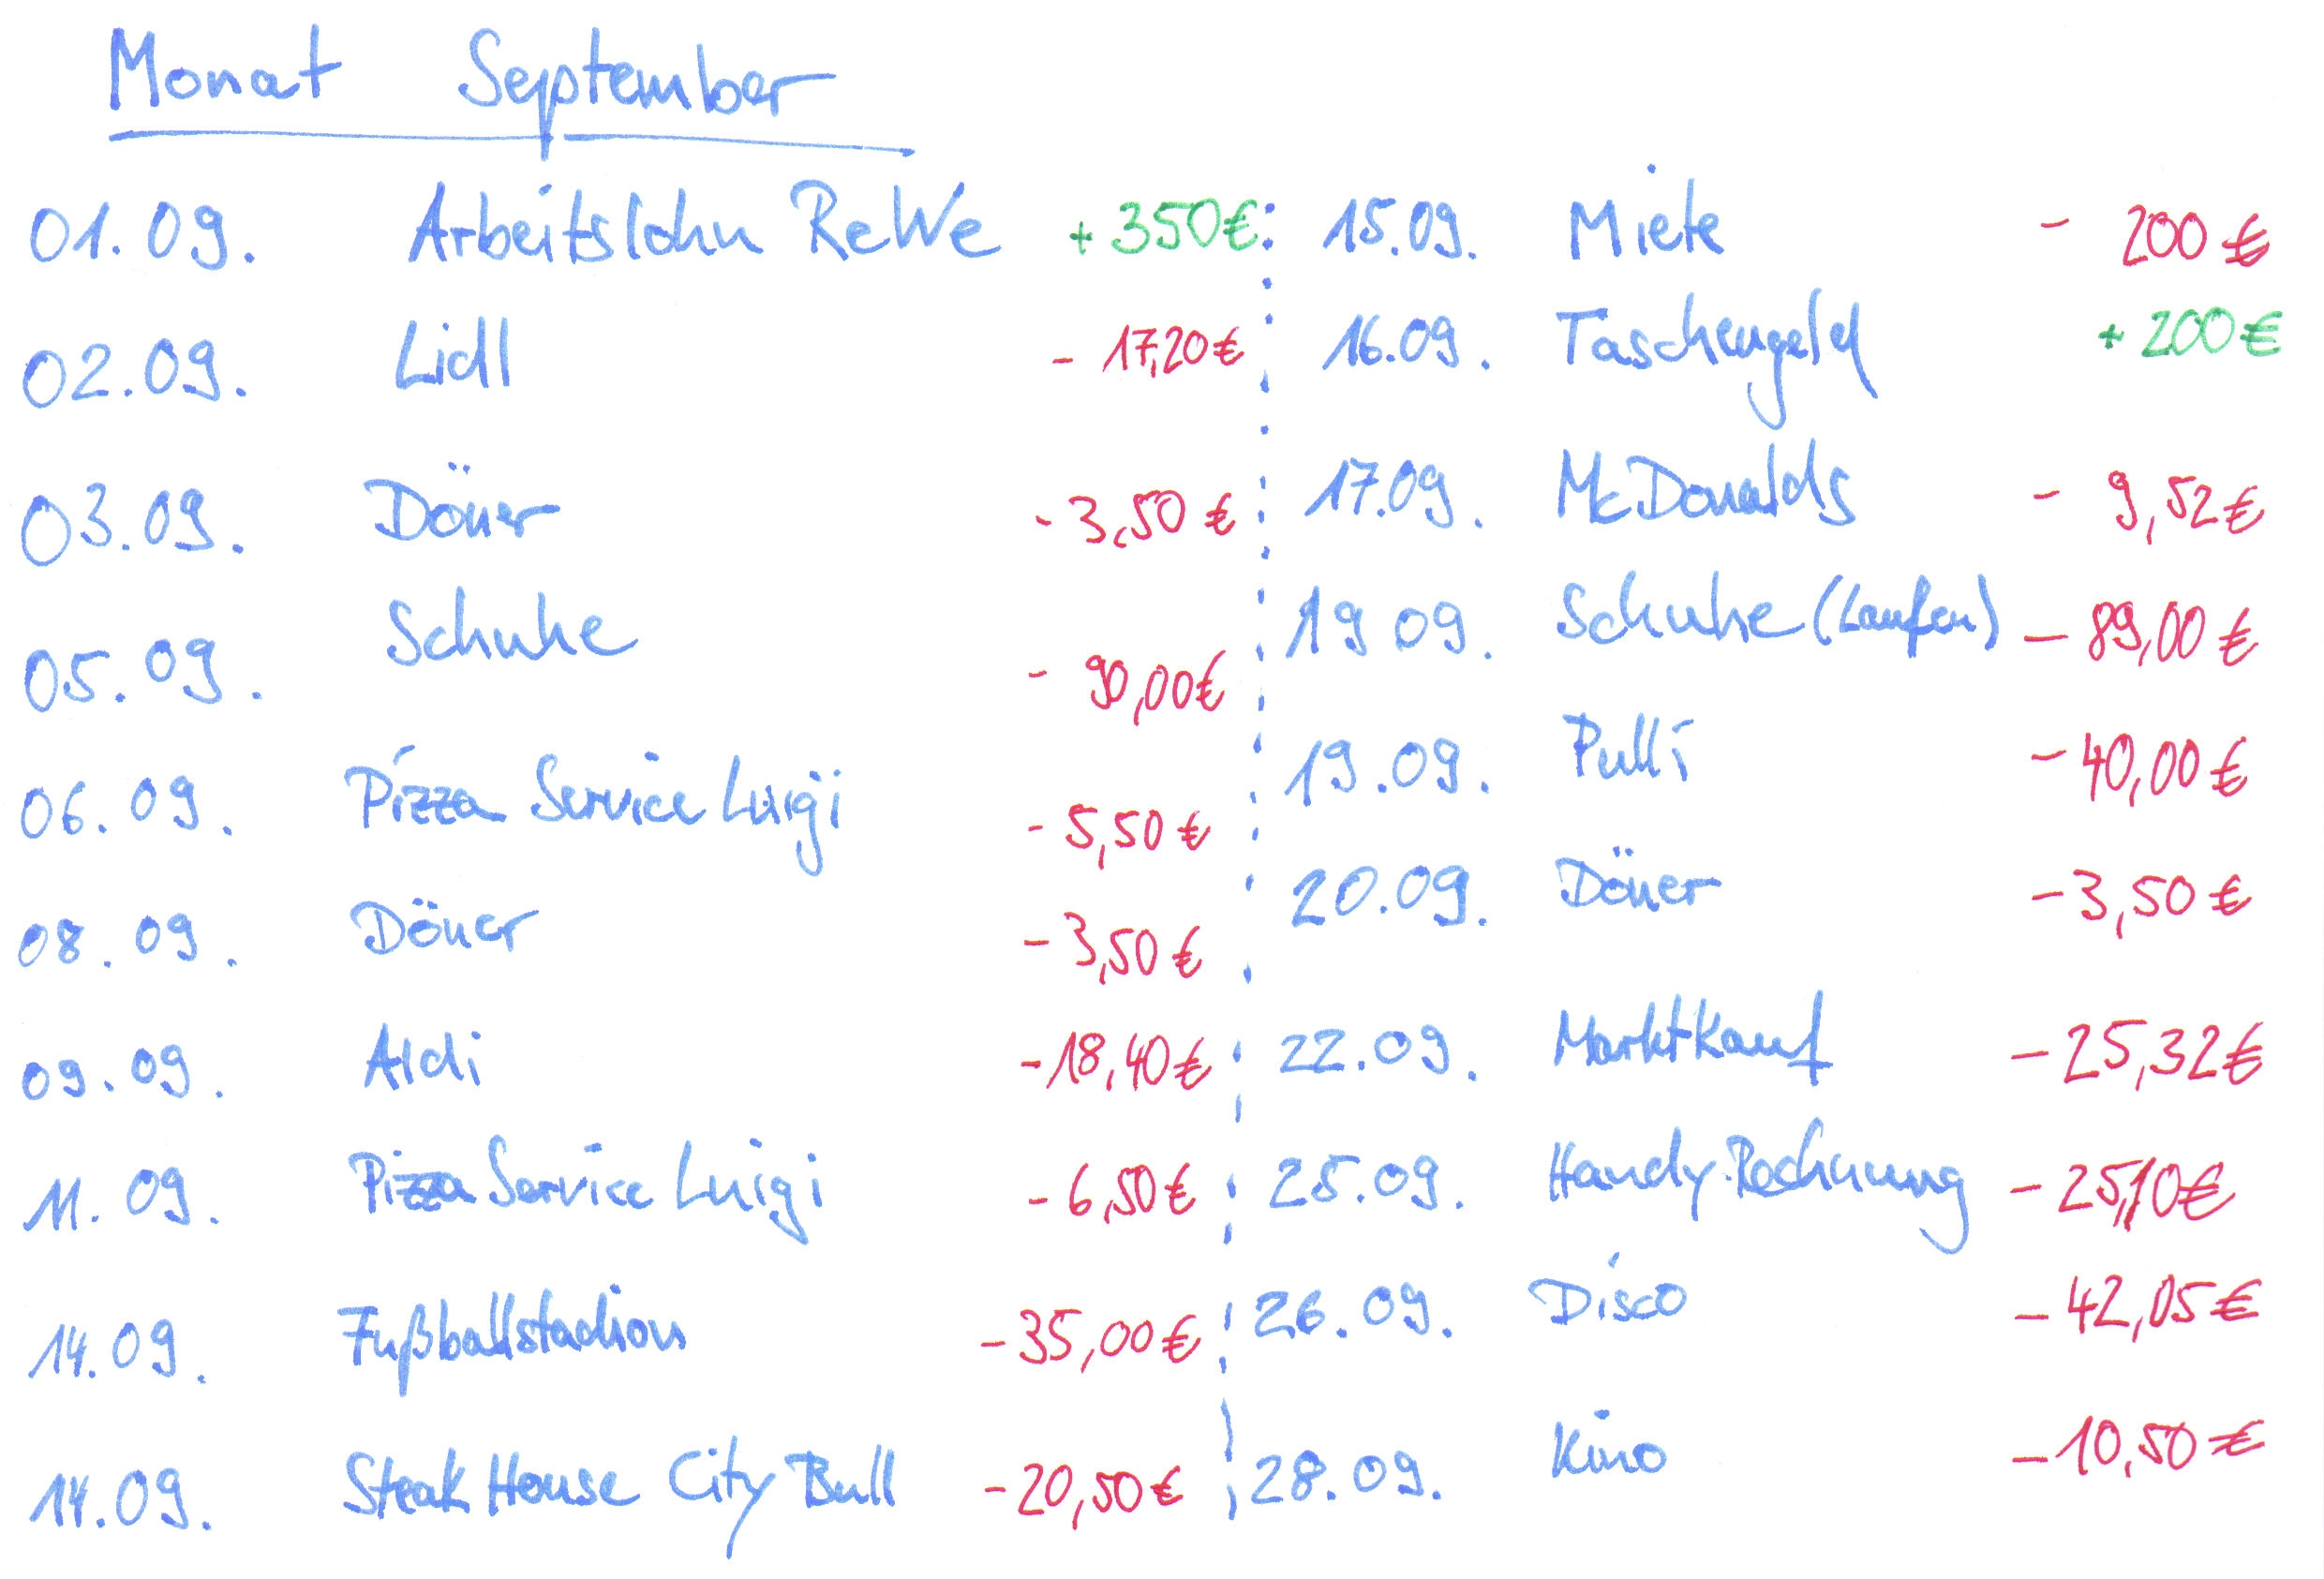 Monat September
01.09. Arbeitslohn ReWe +350€
02.09. Lidl - 17,20€
03.09. Döner - 3,50 €
05.09. Schuhe - 90,00€
06.09. Pizza Service Luigi - 5,50 €
08.09. Döner - 3,50 €
09.09. Aldi - 18,40€
11.09. Pizza Service Luigi - 6,50€
14.09. Fußballstadion - 35,00€
14.09. Steak House City Bull - 20,50€
15.09. Miete - 200 €
16.09. Taschengeld + 200€
17.09. McDonalds - 9,52€
19 09. Schuhe (Laufen) - 89,00 €
19.09. Pulli - 40,00 €
20.09. Döner - 3,50 €
22.09. Marktkauf - 25,32€
25.09. Handy-Rechnung - 25,10€
26.09. Disco - 42,05€
28.09. Kino - 10,50€